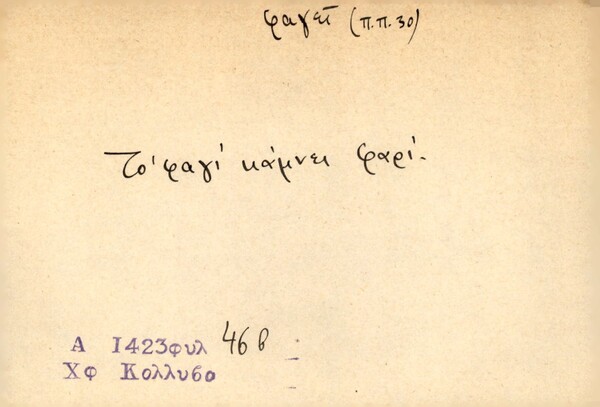 φαγεῖ (π.π.30)
Το' φαγί κάμνει φαρί.
Α 1423φυλ 46 β
Χφ Κολλυβο